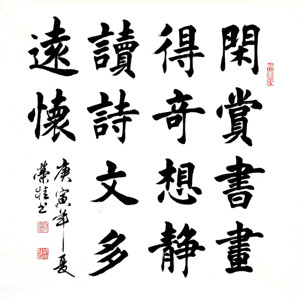 閑賞書畫
得奇想静
讀詩文多
遠懷
庚寅年夏
榮桂书